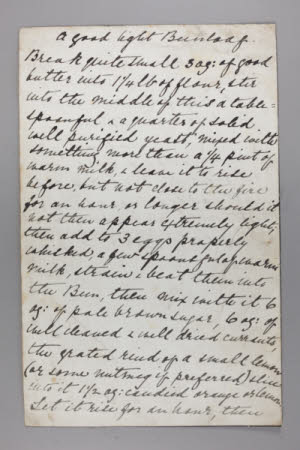 A good light Bunloaf.
Break quite small 3 oz: of good
butter into 1 1/4 lb of flour, stir
into the middle of this a table-
spoonful & a quarter of solid
well purified yeast, mixed with
something more than a 1/4 pint of
warm milk, & leave it to rise
before, but not close to the fire
for an hour, or longer should it
not then appear extremely light,
then add to 3 eggs properly
whisked, a few spoonsful of warm
milk, strain & beat them into
the Bun, then mix with it 6
oz: of pale brown sugar, 6 oz: of
well cleaned & well dried currants,
the grated rind of a small lemon
(or some nutmeg if preferred) slice
into it 1 1/2 oz: candied orange or lemon
Let it rise for an hour, then